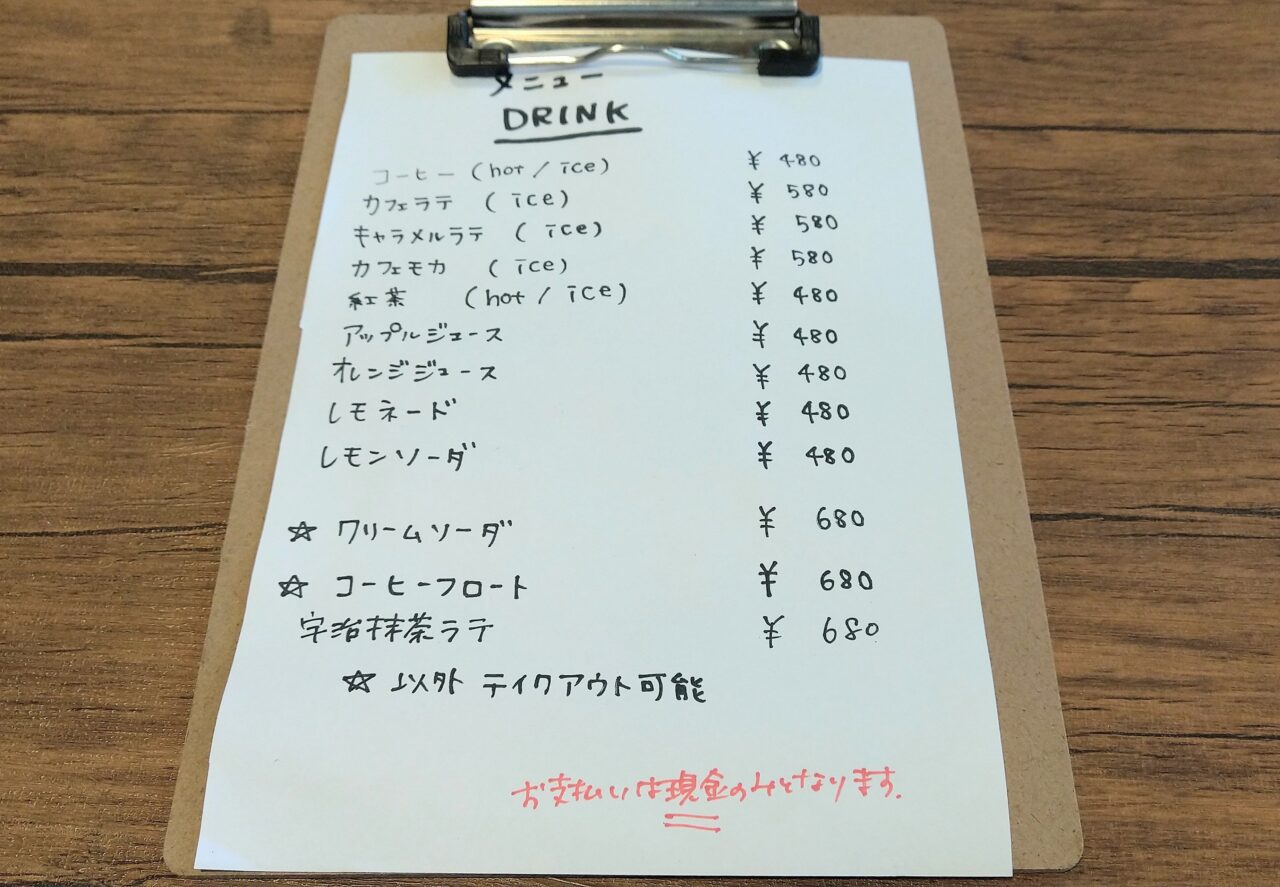 メニュー
DRINK
コーヒー (hot / ice) ¥ 480
カフェラテ ( ice) ¥ 580
キャラメルラテ ( ice) ¥ 580
カフェモカ (ice) ¥ 580
紅茶 (hot / ice) ¥ 480
アップルジュース ¥ 480
オレンジジュース ¥ 480
レモネード ¥ 480
レモンソーダ ¥ 480
☆ クリームソーダ ¥ 680
☆ コーヒーフロート ¥ 680
宇治抹茶ラテ ¥ 680
☆ 以外 テイクアウト可能
お支払いは現金のみとなります.